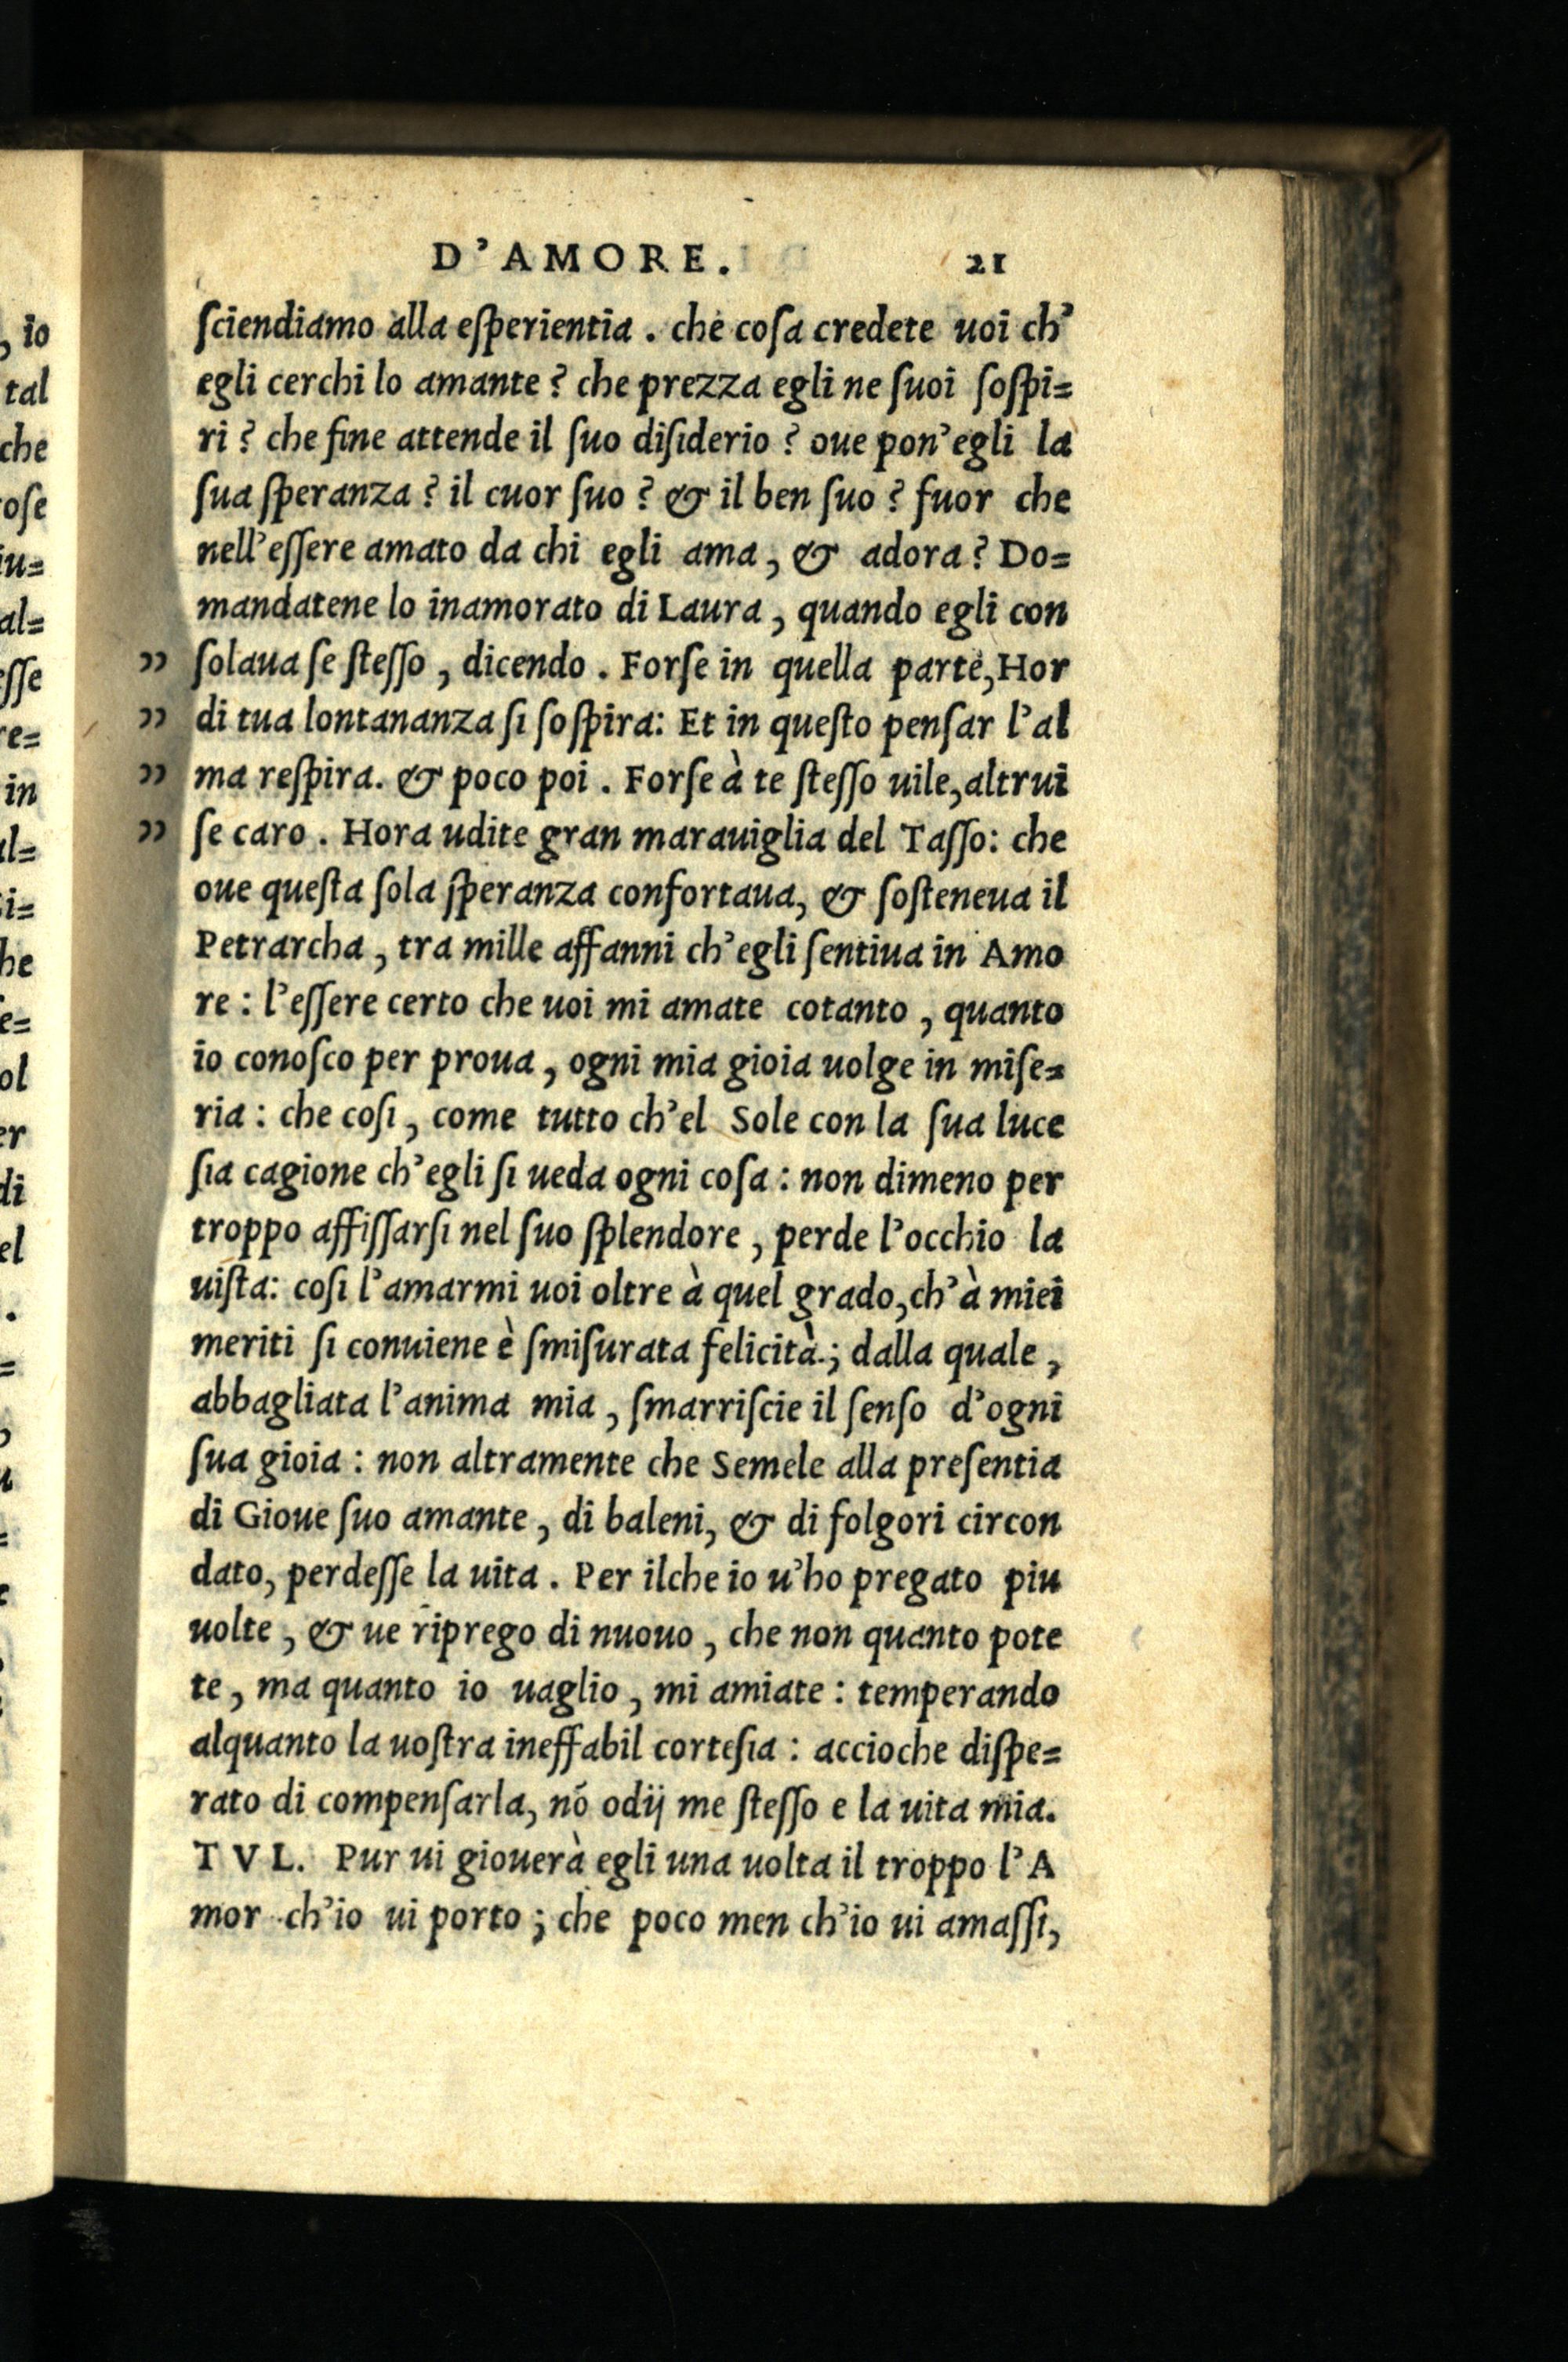 D'AMORE. 21
ſciendiamo alla eſperientia . che coſa credete uoi ch'
egli cerchi lo amante ? che prezza egli ne ſuoi ſoſpi=
ri ? che fine attende il ſuo diſiderio ? oue pon'egli la
ſua ſperanza ? il cuor ſuo ? & il ben ſuo ? fuor che
nell'eſſere amato da chi egli ama , & adora ? Do=
mandatene lo inamorato di Laura , quando egli con
” ſolaua ſe ſteſſo , dicendo . Forſe in quella parte, Hor
” di tua lontananza ſi ſoſpira: Et in queſto penſar l'al
” ma reſpira. & poco poi . Forſe à te ſteſſo uile, altrui
” ſe caro . Hora udite gran marauiglia del Taſſo: che
oue queſta ſola ſperanza confortaua, & ſoſteneua il
Petrarcha , tra mille affanni ch'egli ſentiua in Amo
re : l'eſſere certo che uoi mi amate cotanto , quanto
io conoſco per proua , ogni mia gioia uolge in miſe=
ria : che coſi , come tutto ch'el Sole con la ſua luce
ſia cagione ch'egli ſi ueda ogni coſa : non dimeno per
troppo affiſſarſi nel ſuo ſplendore , perde l'occhio la
uiſta: coſi l'amarmi uoi oltre à quel grado, ch'à miei
meriti ſi conuiene è ſmiſurata felicità ; dalla quale ,
abbagliata l'anima mia , ſmarriſcie il ſenſo d'ogni
ſua gioia : non altramente che Semele alla preſentia
di Gioue ſuo amante , di baleni, & di folgori circon
dato, perdeſſe la uita . Per ilche io u'ho pregato piu
uolte , & ue riprego di nuouo , che non quanto pote
te , ma quanto io uaglio , mi amiate : temperando
alquanto la uoſtra ineffabil corteſia : accioche diſpe=
rato di compenſarla, nó odij me ſteſſo e la uita mia.
TVL. Pur ui giouerà egli una uolta il troppo l'A
mor ch'io ui porto ; che poco men ch'io ui amaſſi,
, io
tal
che
oſe
iu=
al=
eſſe
re=
in
al=
i=
he
e=
ol
er
di
el